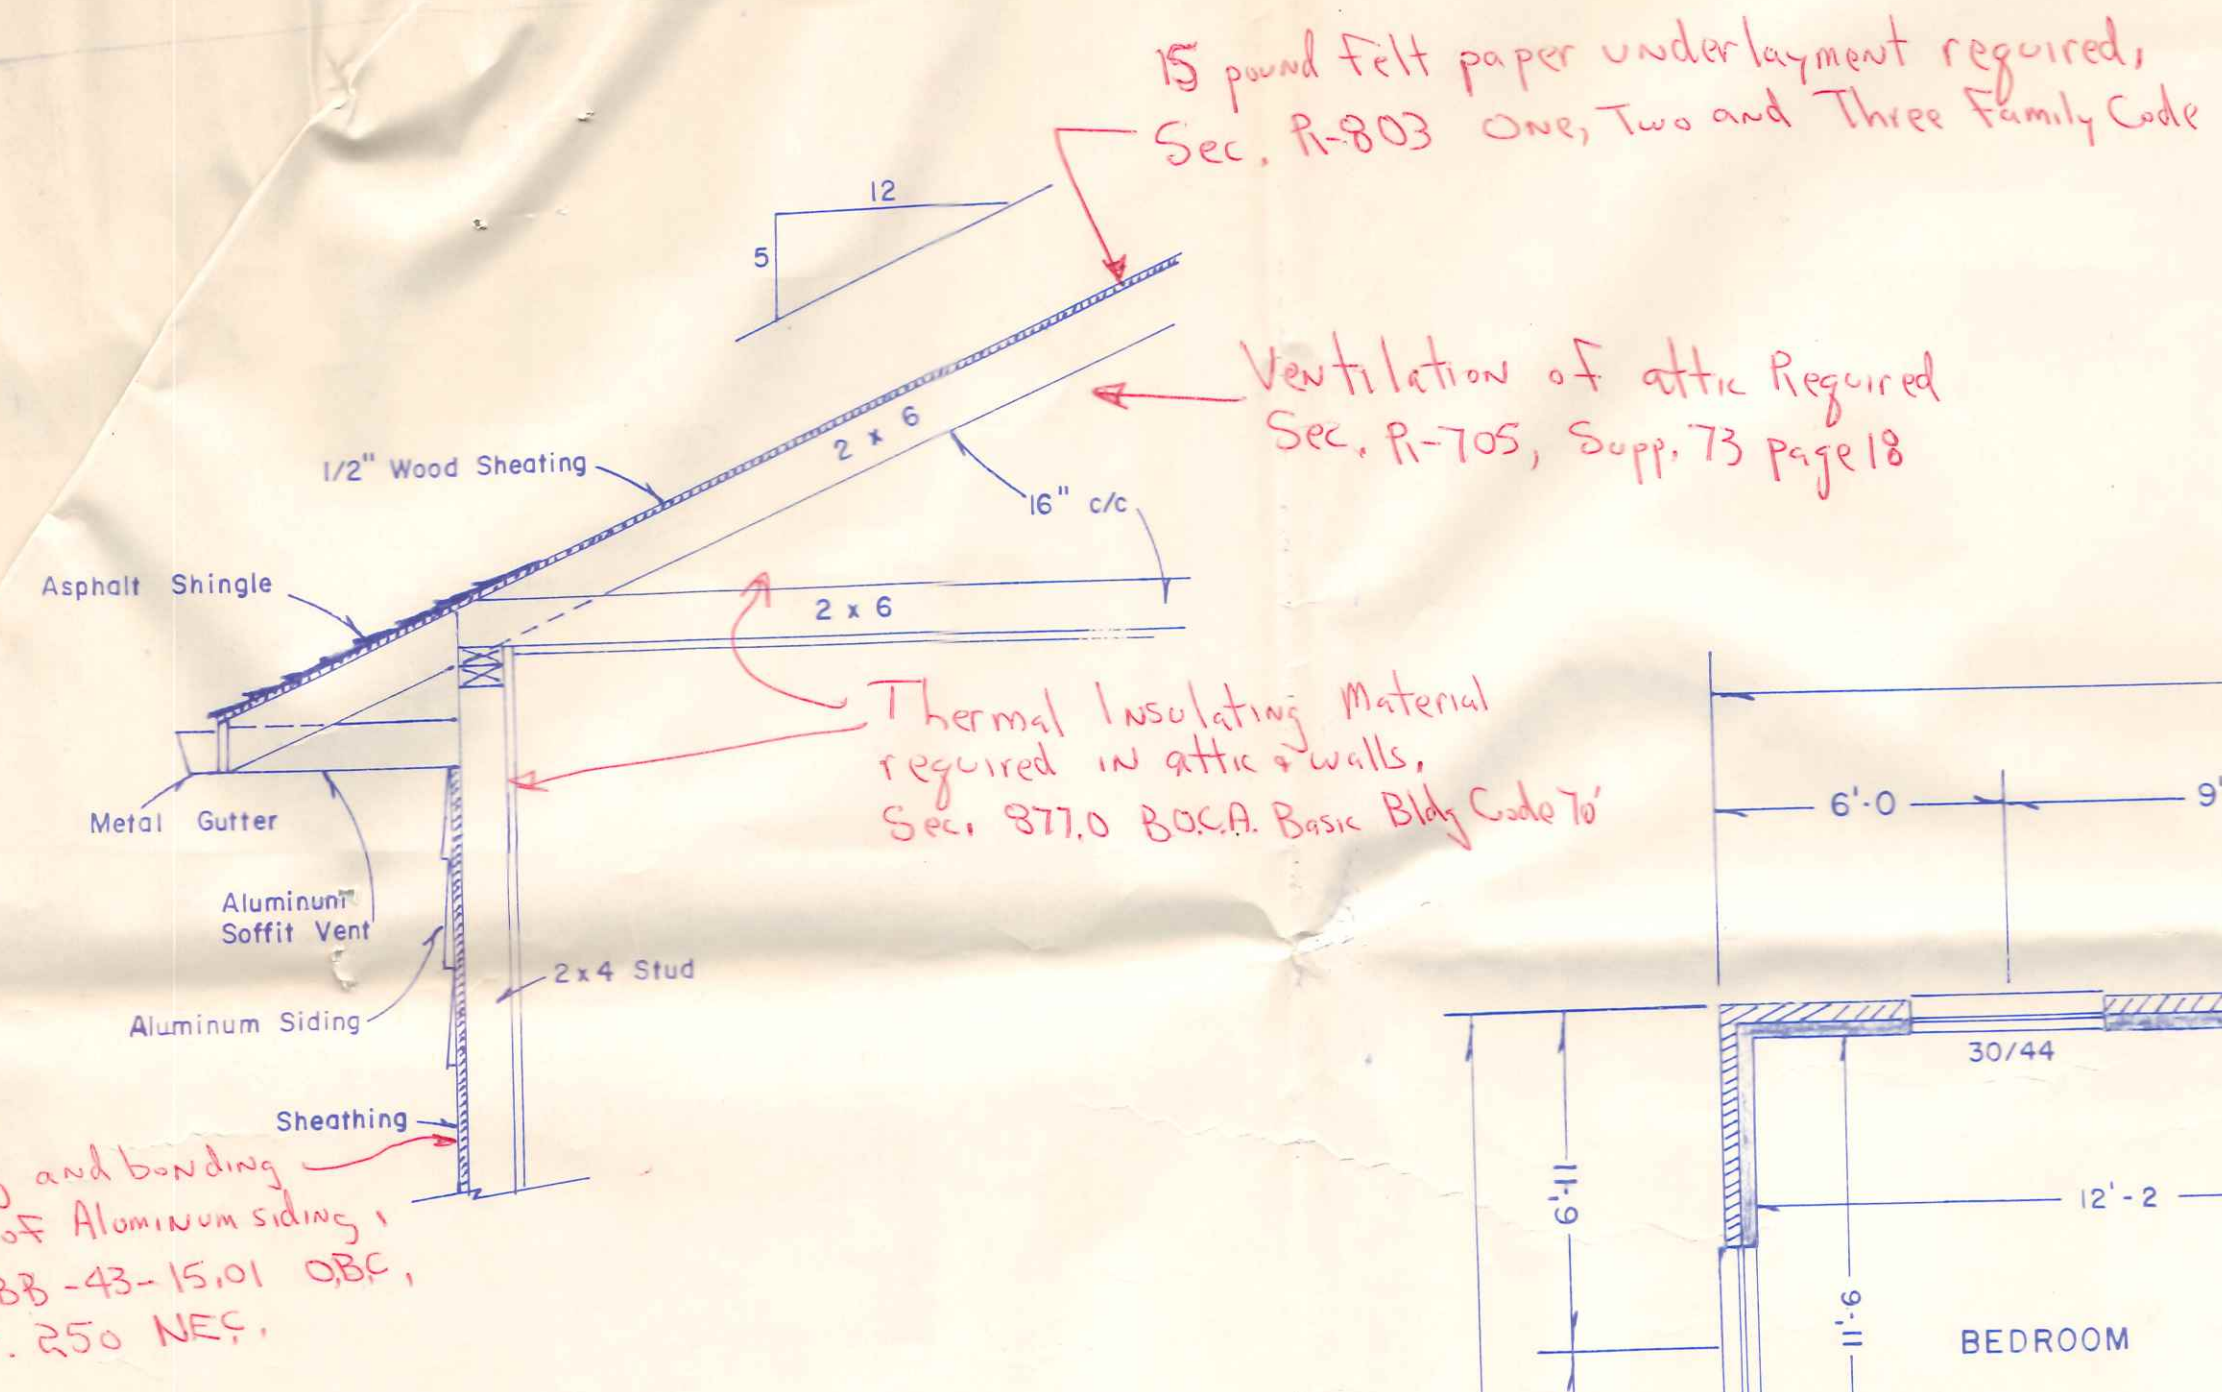 15 pound felt paper underlayment required,
Sec. R-803 One, Two and Three Family Code
12
5
Ventilation of attic Required
Sec. R-705, Supp. 73 page 18
2 x 6
1/2" Wood Sheating
16" c/c
Asphalt Shingle
2 x 6
Thermal Insulating Material
required in attic & walls.
Sec. 877.0 B.O.C.A. Basic Bldg Code 70'
Metal Gutter
Aluminum
Soffit Vent
2x4 Stud
Aluminum Siding
Sheathing
and bonding
of Aluminum siding,
BB-43-15.01 O.B.C,
. 250 NEC.
6'-0
9'
30/44
6'-11
12'-2
11'-6
BEDROOM